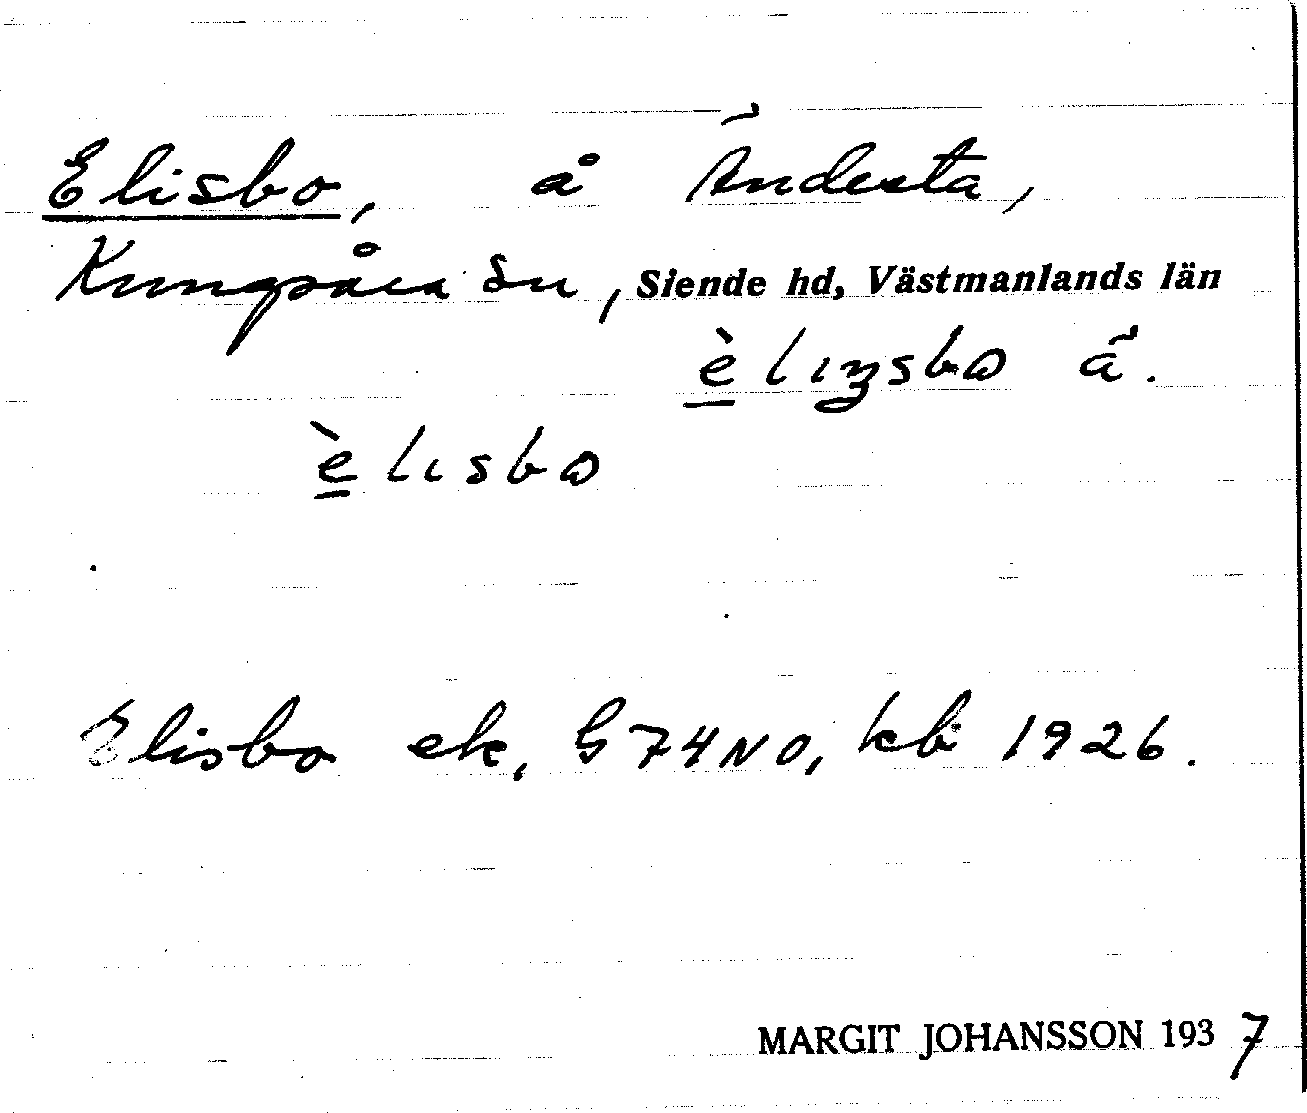 Elisbo, å Ändesta,
Kungsåra sn, Siende hd, Västmanlands län
èlızsbo á.
èlısbo
Elisbo ek, G74NO, kb 1926.
MARGIT JOHANSSON 1937